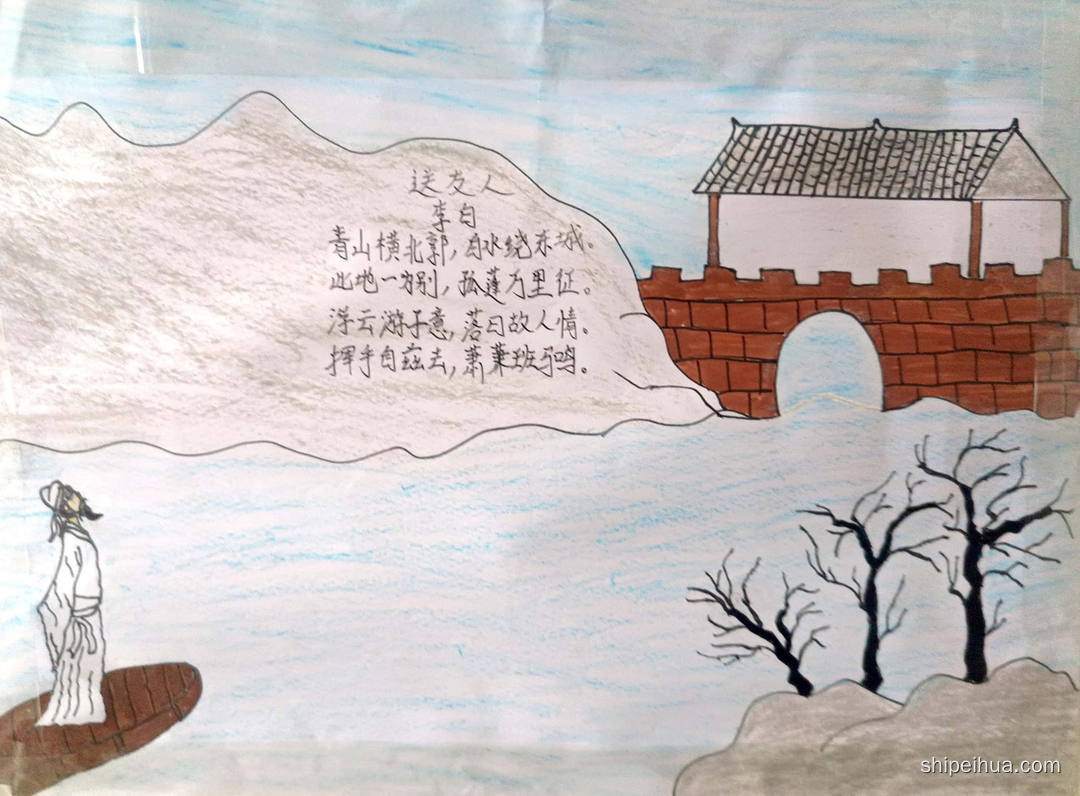 送友人
李白
青山横北郭,白水绕东城。
此地一为别,孤蓬万里征。
浮云游子意,落日故人情。
挥手自兹去,萧萧班马鸣。
shipeihua.com